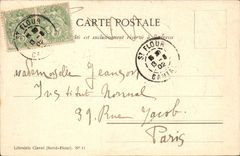 CARTE POSTALE
est exclusivement réservé à
ST FLOUR
CANTAL
Mademoiselle Jeanson
Institut Normal
39 Rue Jacob
Paris
Librairie Clavel (Saint-Flour). N° 11